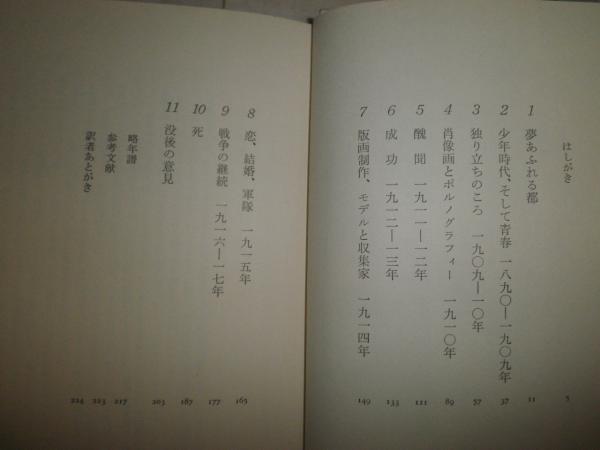 はしがき 5
1 夢あふれる都 11
2 少年時代、そして青春 一八九〇―一九〇九年 37
3 独り立ちのころ 一九〇九―一〇年 57
4 肖像画とポルノグラフィー 一九一〇年 89
5 醜聞 一九一一―一二年 121
6 成功 一九一二―一三年 133
7 版画制作、モデルと収集家 一九一四年 149
8 恋、結婚、軍隊 一九一五年 165
9 戦争の継続 一九一六―一七年 177
10 死 187
11 没後の意見 203
略年譜 217
参考文献 223
訳者あとがき 224